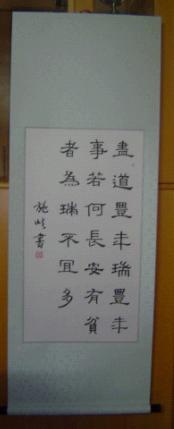 盡道豐年瑞豐年
事若何長安有貧
者為瑞不宜多
施峻書